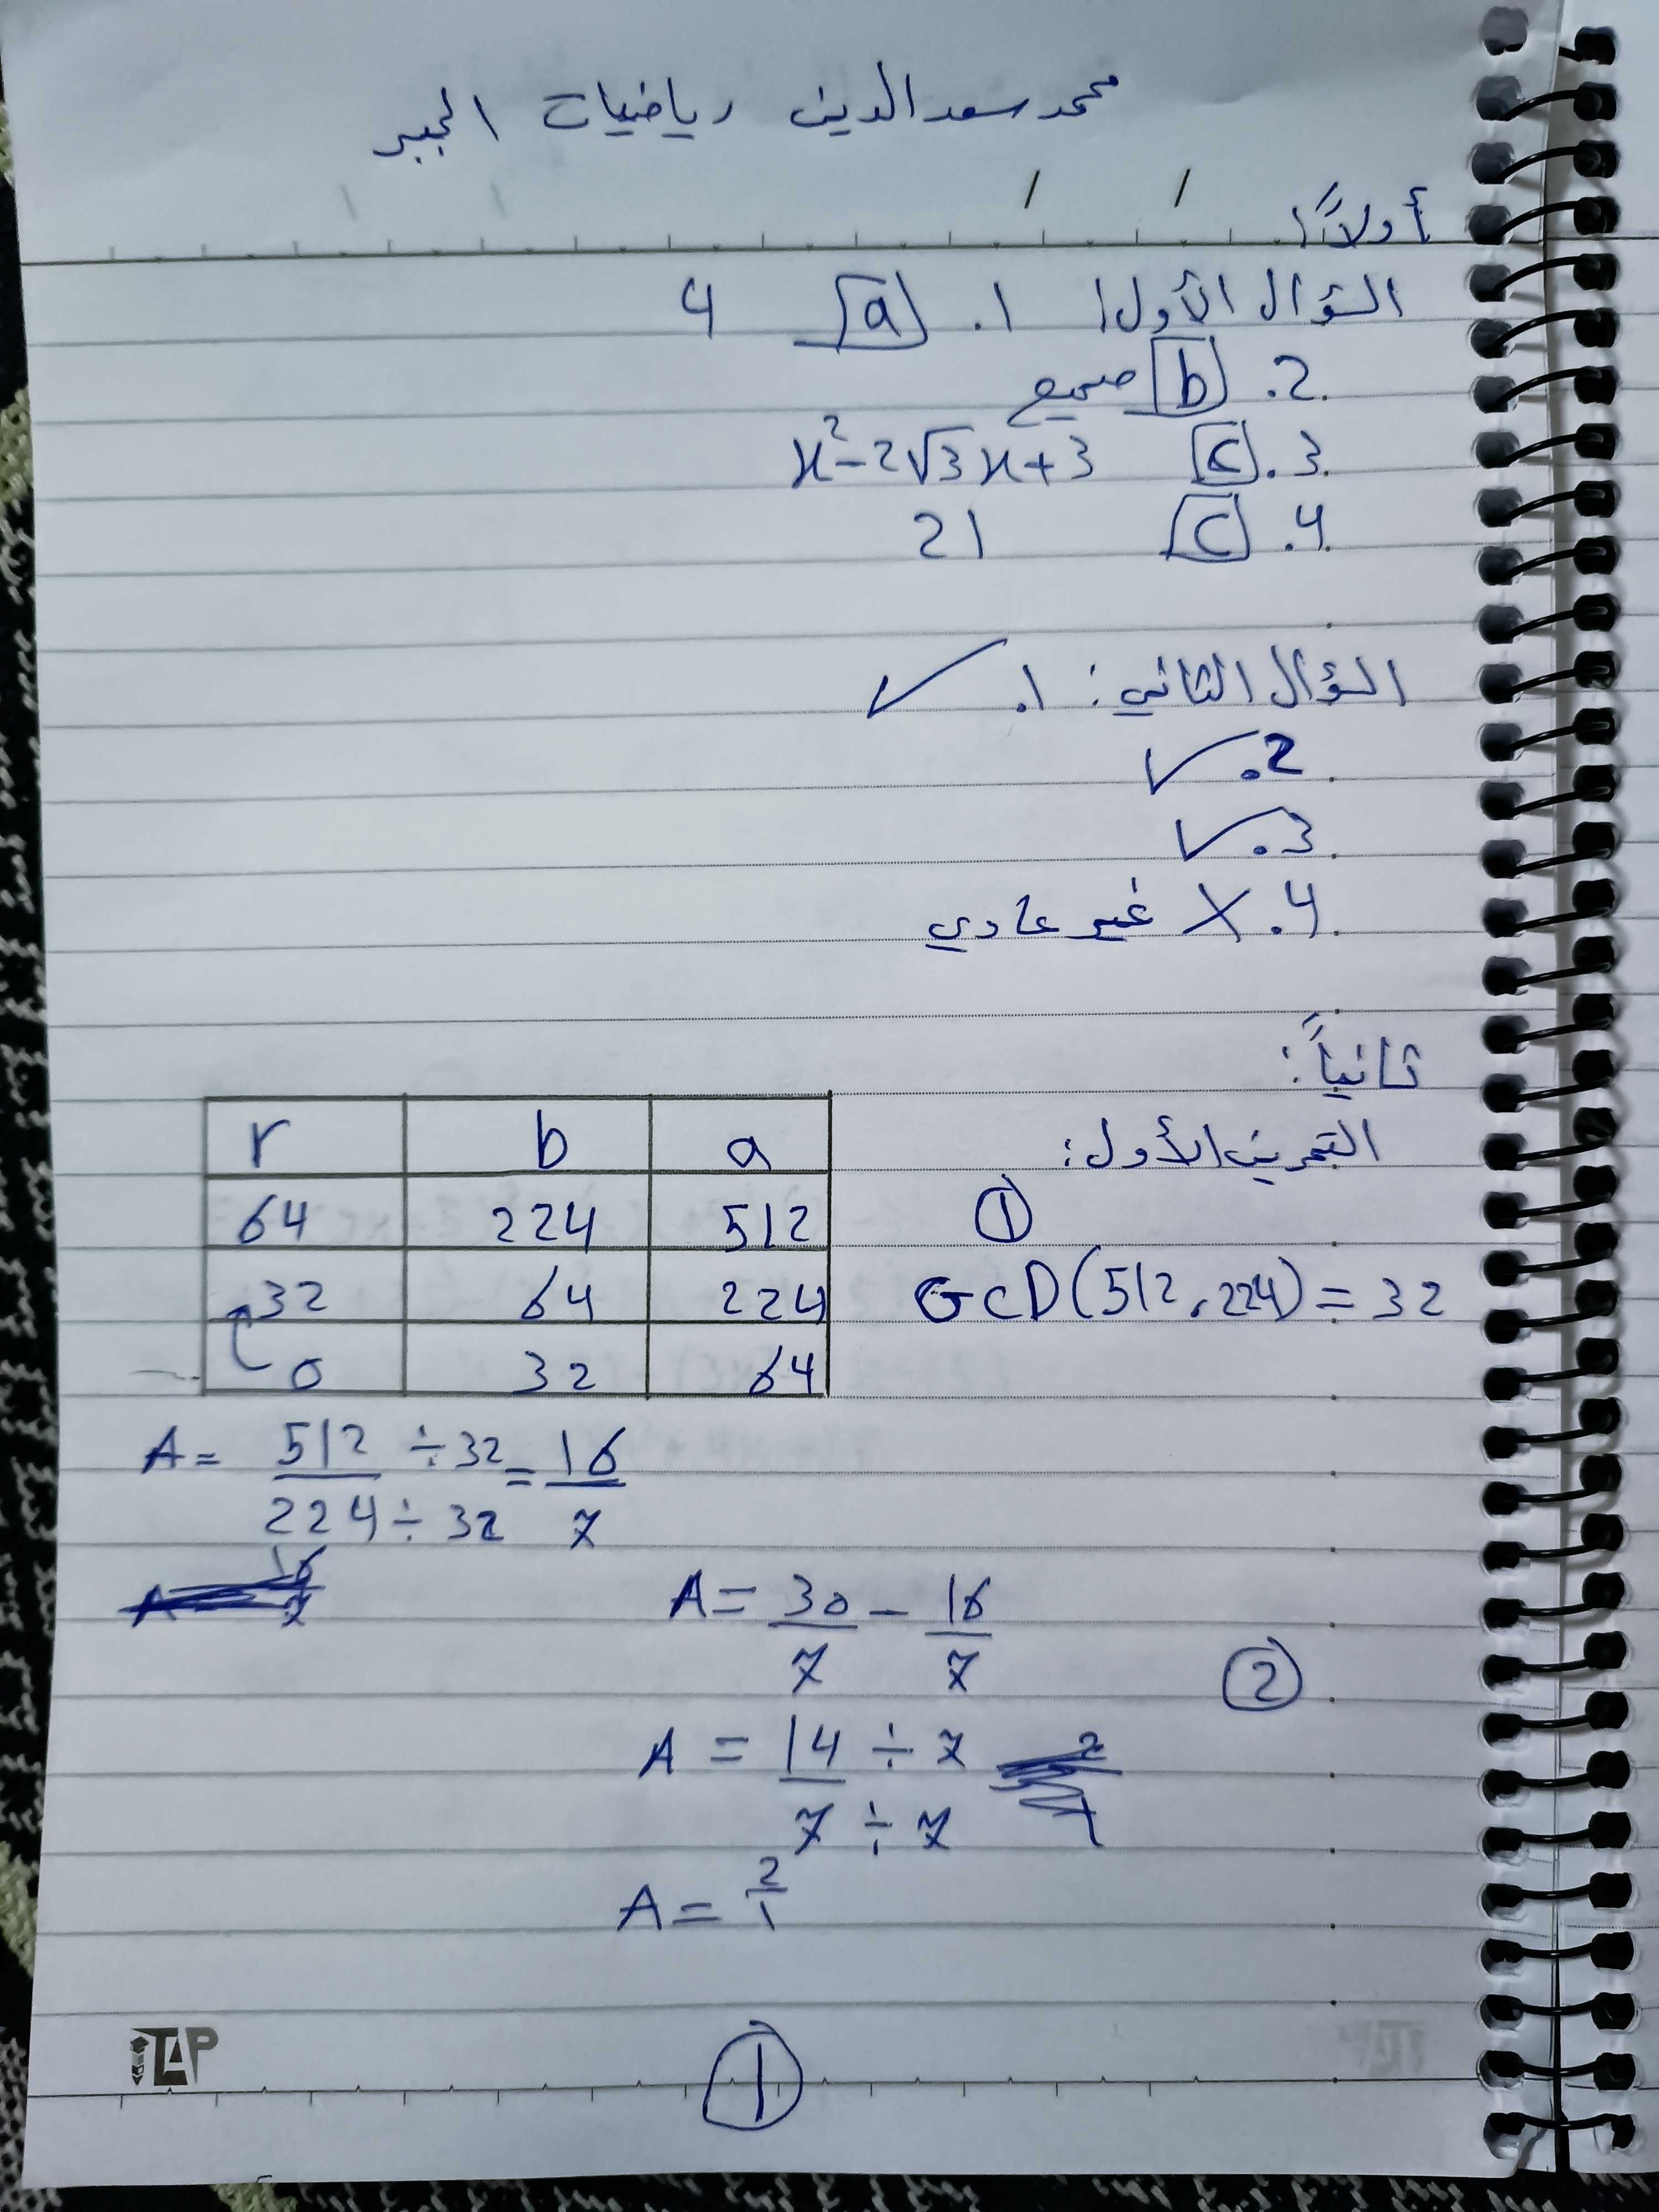 محمد سعد الدين رياضيات الجبر
أولاً:
السؤال الأول: 1. a 4
2. b صحيح
3. c x²-2√3x+3
4. c 21
السؤال الثاني: 1. ✓
2. ✓
3. ✓
4. X غير عادي
ثانياً:
التمرين الأول:
①
GCD(512,224)=32
a b r
512 224 64
224 64 32
64 32 0
A= 512÷32/224÷32 = 16/7
②
A= 30/7 - 16/7
A = 14÷7/7÷7
A= 2/1
iTAP
①